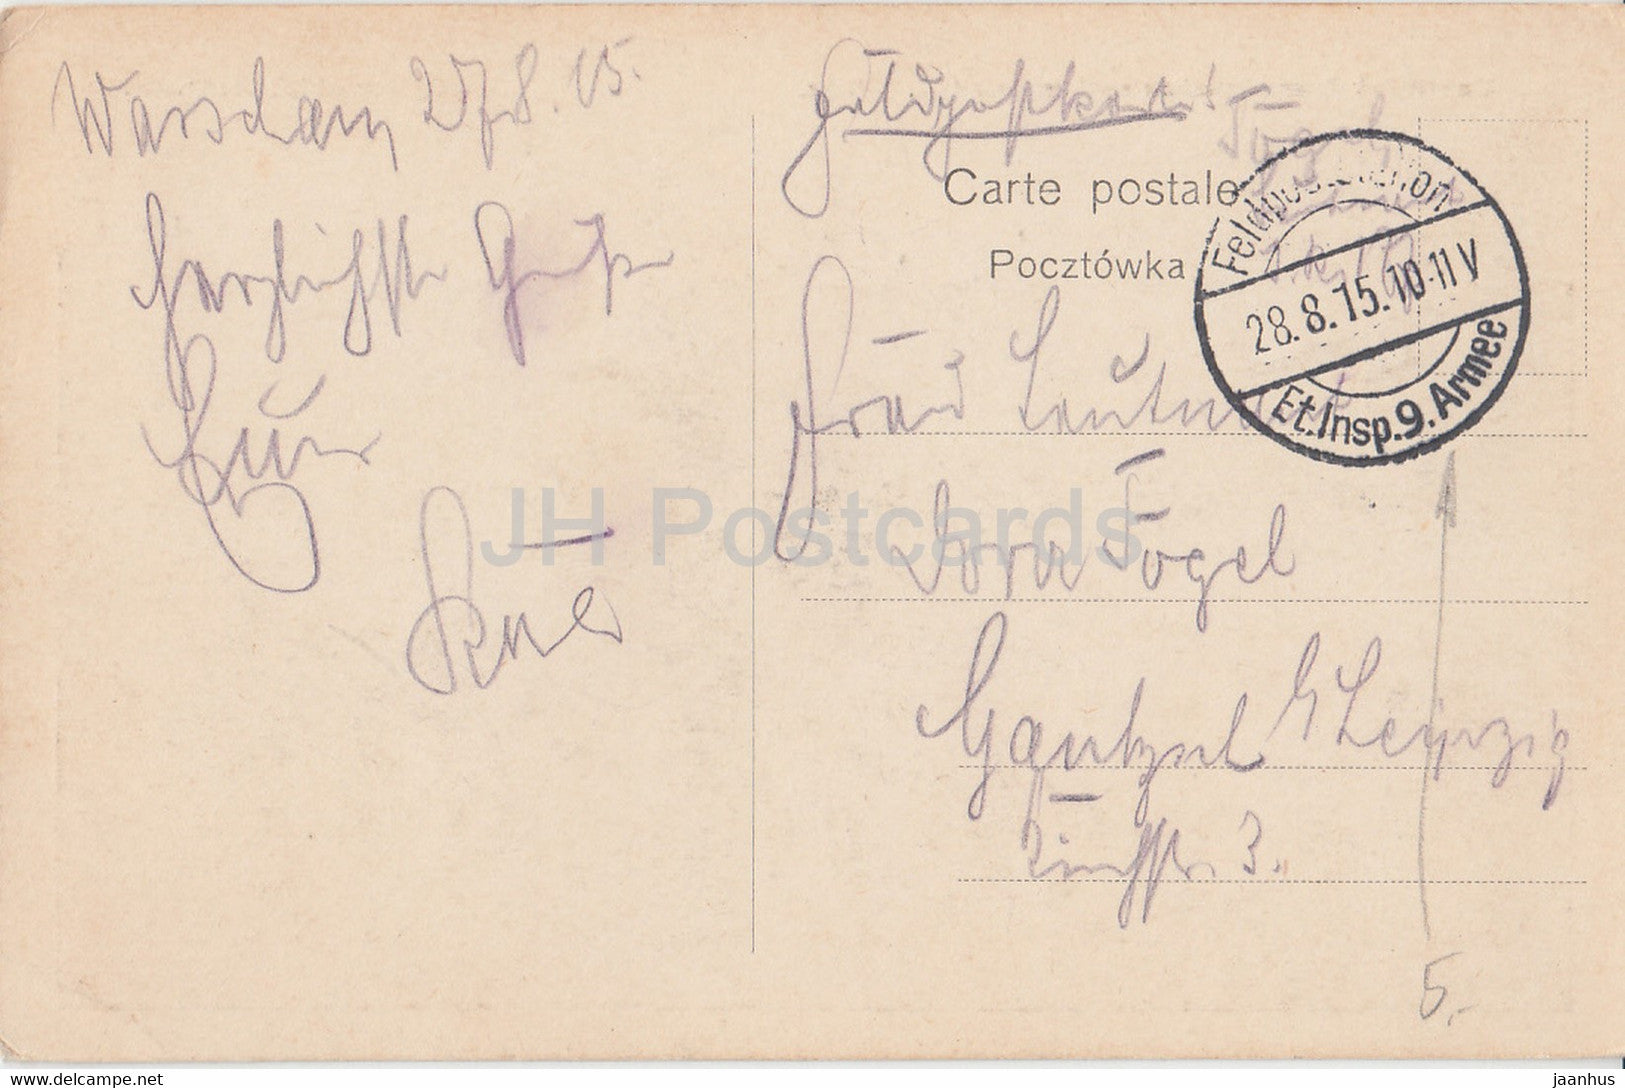 Warschau 27.8.15.
herzlichste Grüße
Euer
Feldpostkarte!
Carte postale
Pocztówka
Feldpoststation
28.8.15.10-11 V
Et.Insp.9.Armee
Frau Leutnant
Dora Vogel
Gautzsch b/Leipzig
3.
5.-
JH Postcards
www.delcampe.net
jaanhus